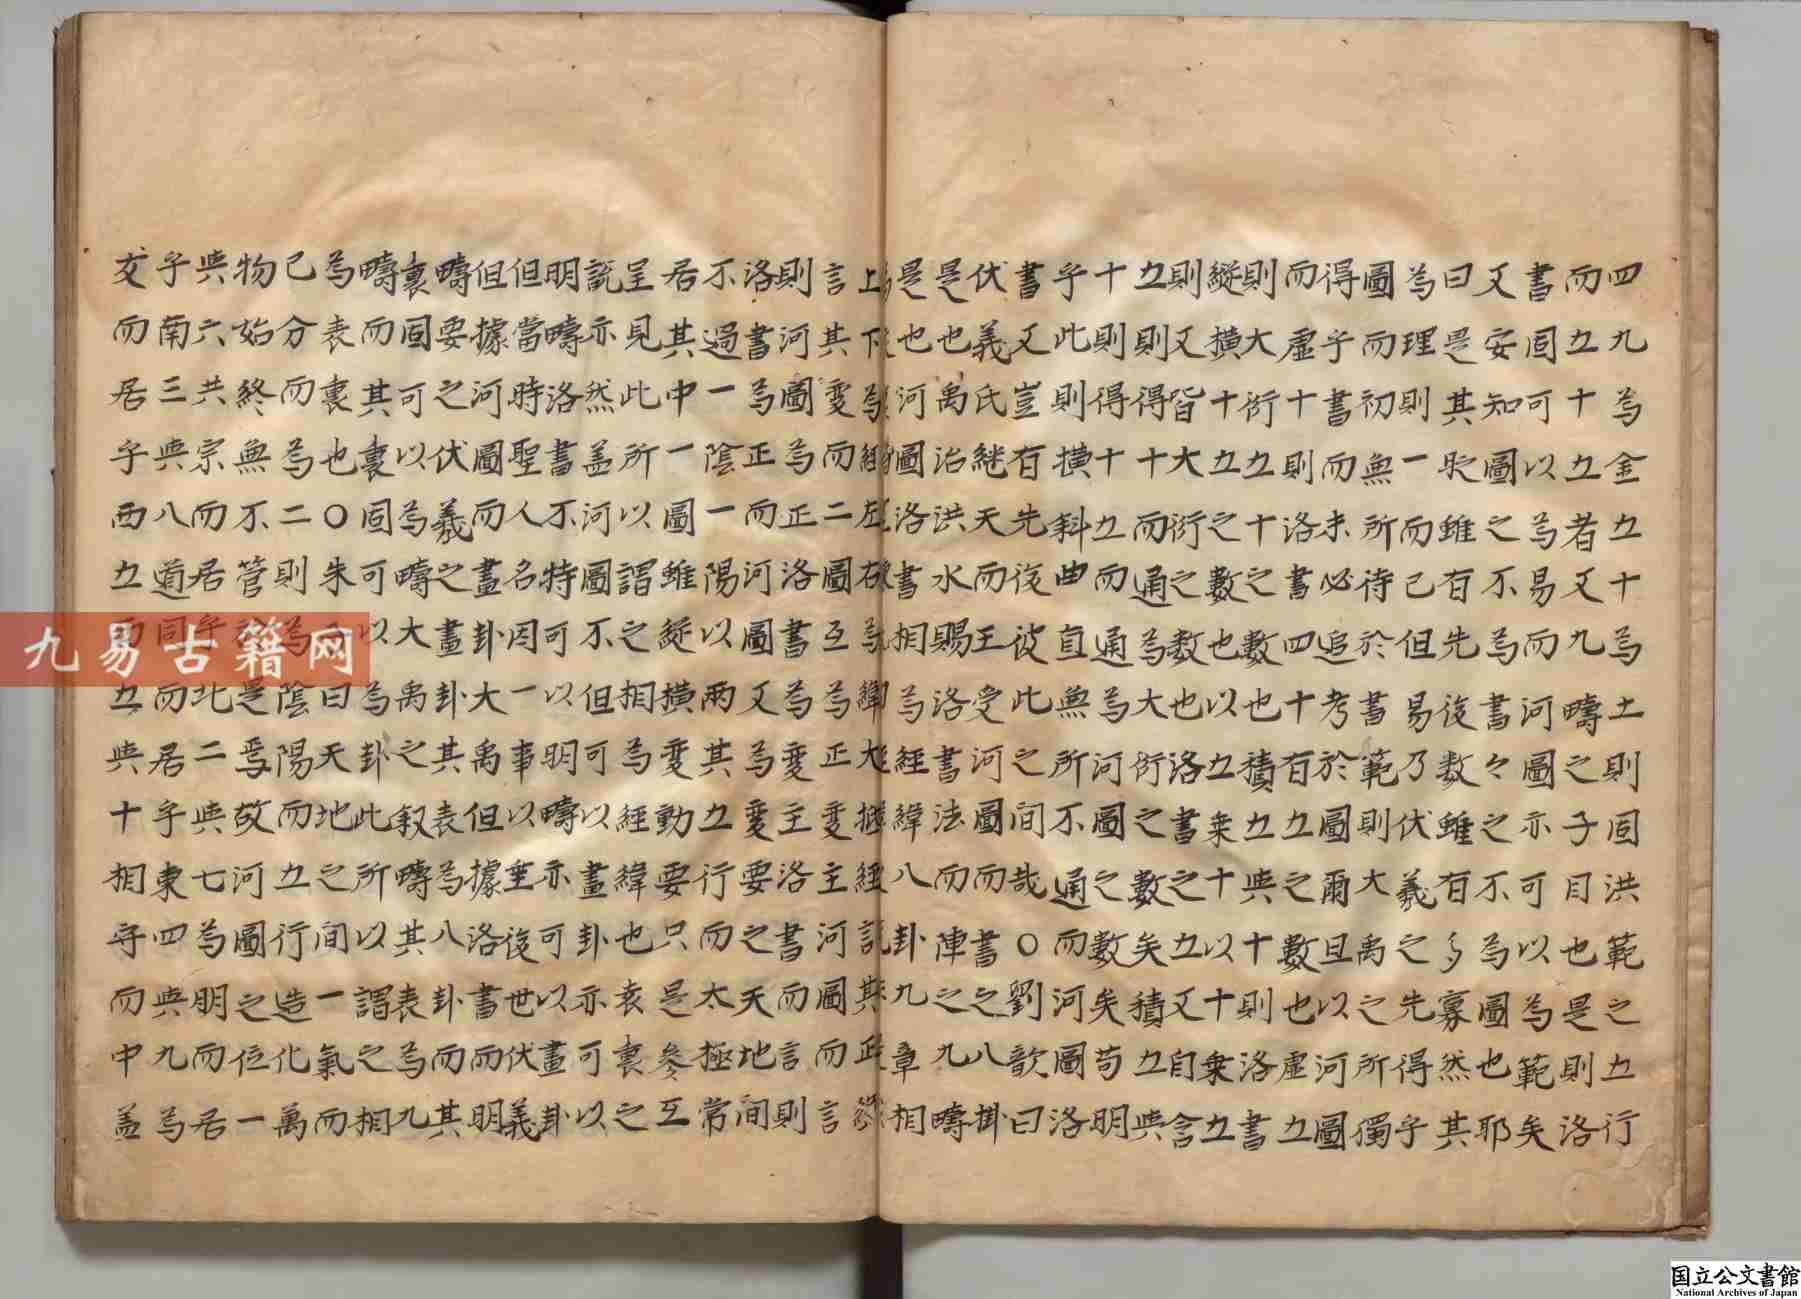 四九為金五十為土則固洪範之五行
而五十五者又九疇之子目也是則洛
書固可以為易而河圖亦可以為範矣
又安知圖之不為書々之不為圖也耶
曰是其時雖有先後數雖有多寡然其
為理則一而已但易乃伏羲之先得乎
圖而初無所待於書範則大禹之所獨
得乎書而未必追考於圖爾且以河圖
而虛十則洛書四十有五之數也虛五
則大衍五十之數也積五與十則洛書
縱橫十五之數也以五乗十以十乗五
則又皆大衍之數也洛書之五又自含
五則得十而通為大衍之數矣積五與
十則得十五而通為河圖之數矣苟明
乎此則橫斜曲直無所不通而河圖洛
書又豈有先後彼此之間哉○劉歆曰
伏羲氏継天而王受河圖而書之八掛
是也禹治洪水賜洛書法而陣之九疇
是也河圖洛書相為經緯八卦九章相
上下為經左右為緯大抵經言其正
言其變而二圖互為正變主河圖而言
則河圖為正洛書為變主洛書而言則
洛書為正而河圖又為變要之天地間
不過一陰一陽以兩其五行而太極常
居其中一圖雖縱橫變動要只是參互
呈見此所以謂之相為經緯也表裏之
說亦然蓋河圖不但可以畫卦亦可以
明疇洛書不特可以明疇亦可以畫卦
但當時聖人名因一事以垂後世伏羲
但據河圖而畫卦大禹但據洛書而明
疇要之伏羲之畫卦其表為八卦而其
裏固可以為疇大禹之叙疇其表為九
疇而其裏固可以為卦此所以謂之相
為表裏也○朱子曰天地之間一氣而
已分而為二則為陰陽而五行造化萬
物始終無不管於是焉故河圖之位一
與六共宗而居乎北二與七為明而居
乎南三與八道同而居乎東四與九為
交而居乎西五而五與十相守而中蓋
九易古籍网
国立公文書館
National Archives of Japan